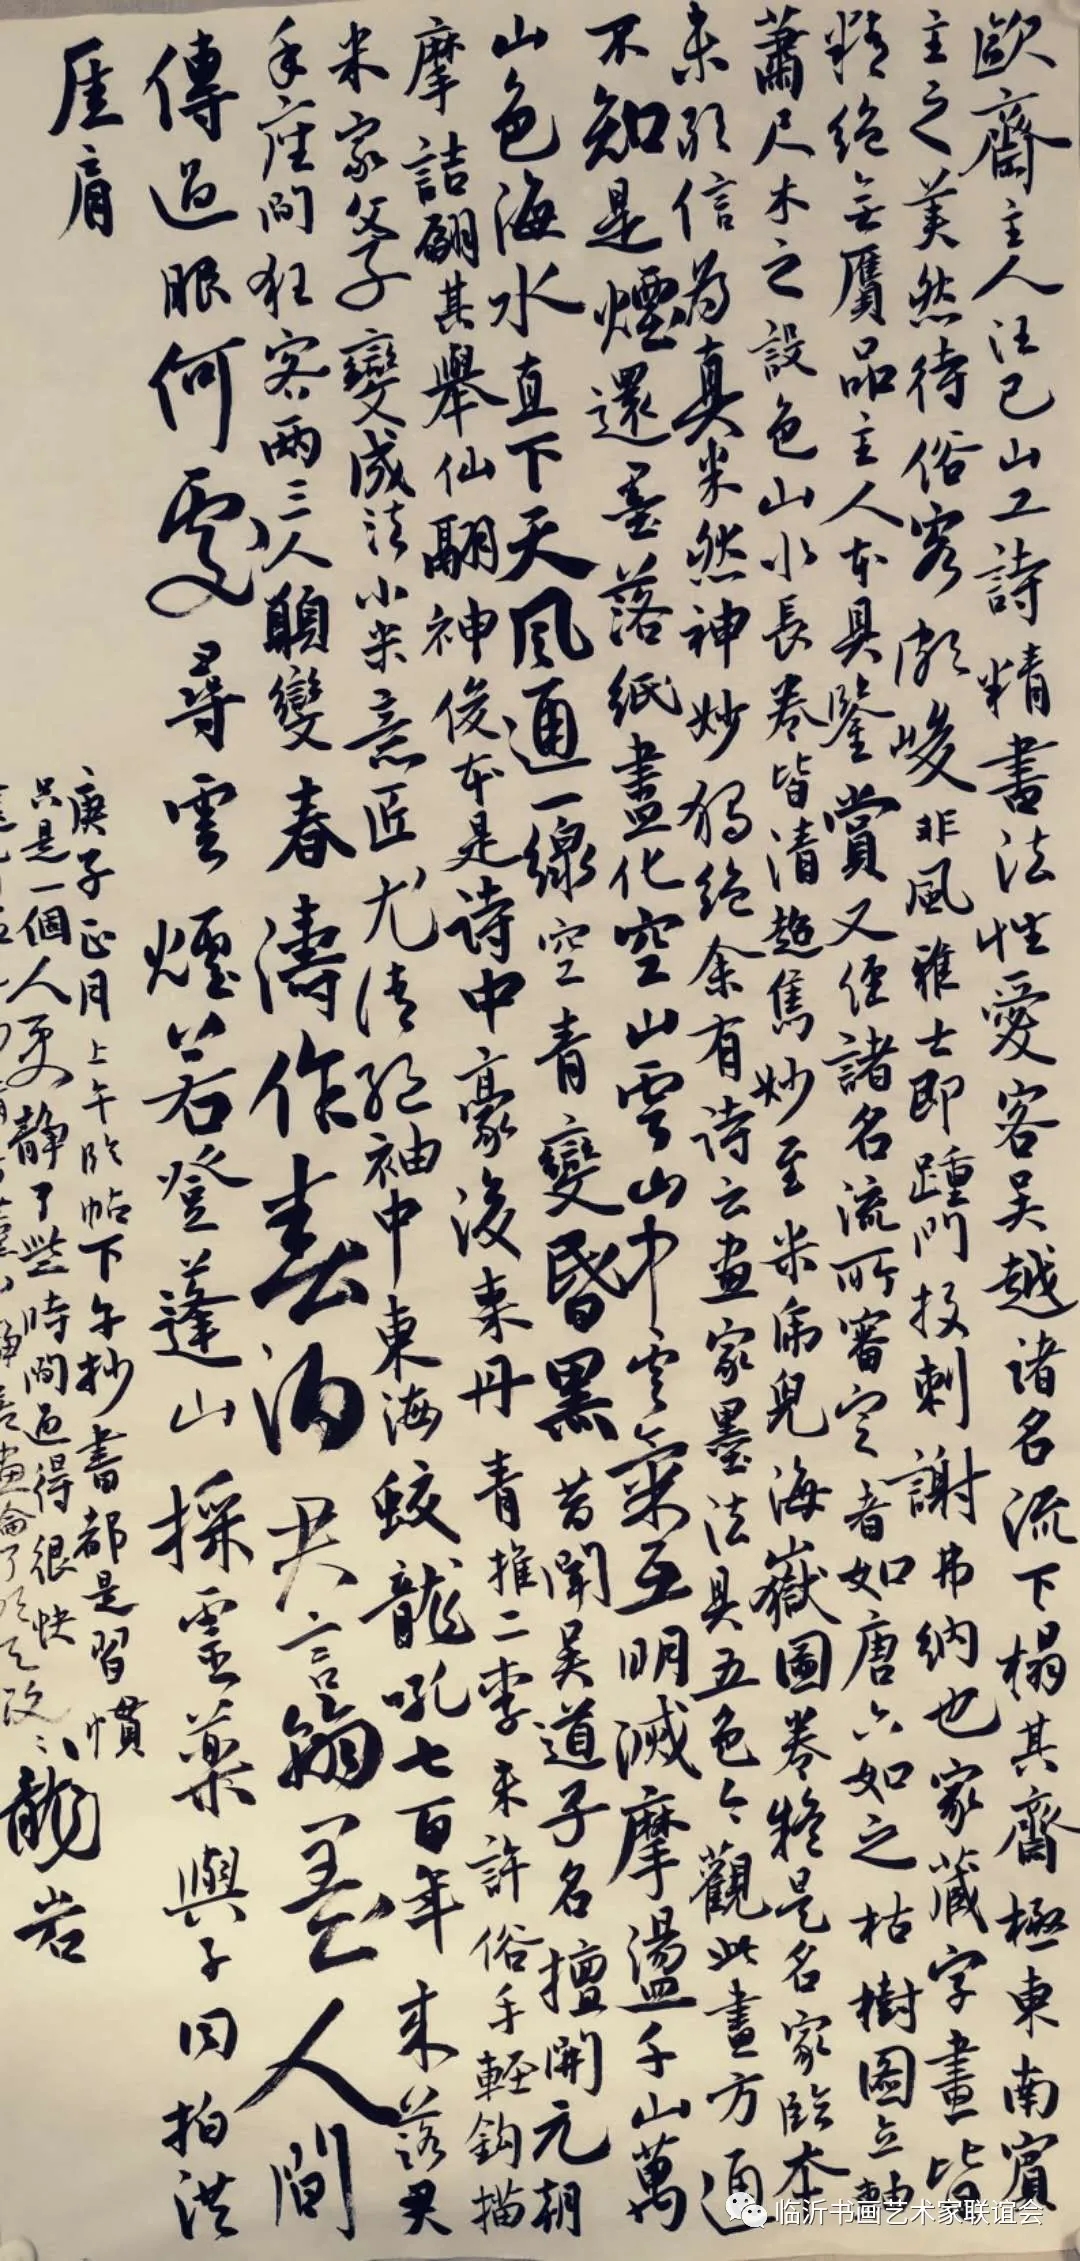 歐齋主人汪已山工詩精書法性愛客吴越諸名流下榻其齋極東南賓
主之美然待俗客頗峻非風雅士即踵門投刺謝弗納也家藏字畫皆
精绝無贋品主人本具鑒賞又經諸名流所審定者如唐六如之枯樹圖立軸
蕭尺木之設色山水長卷皆清超雋妙至米虎兒海嶽圖卷雖是名家臨本
未敢信為真米然神妙獨绝余有詩云畫家墨法具五色今觀此畫方通
不知是煙還墨落纸盡化空山雲山中雲氣互明滅摩盪千山萬
山色海水直下天風通一線空青變昏黑昔聞吴道子名擅開元朝
摩詰翩其舉仙翮神俊本是诗中豪後来丹青推二李未許俗手輕鈎描
米家父子變成法小米意匠尤清絕袖中東海蛟龍吼七百年来落君
手座間狂客两三人願變春濤作春酒君言翰墨人間
傳過眼何處尋雲煙若登蓬山採靈藥與子同拍洪
厓肩
庚子正月上午临帖下午抄書都是習慣
只是一個人更静了些時間過得很快
龍岩
临沂书画艺术家联谊会